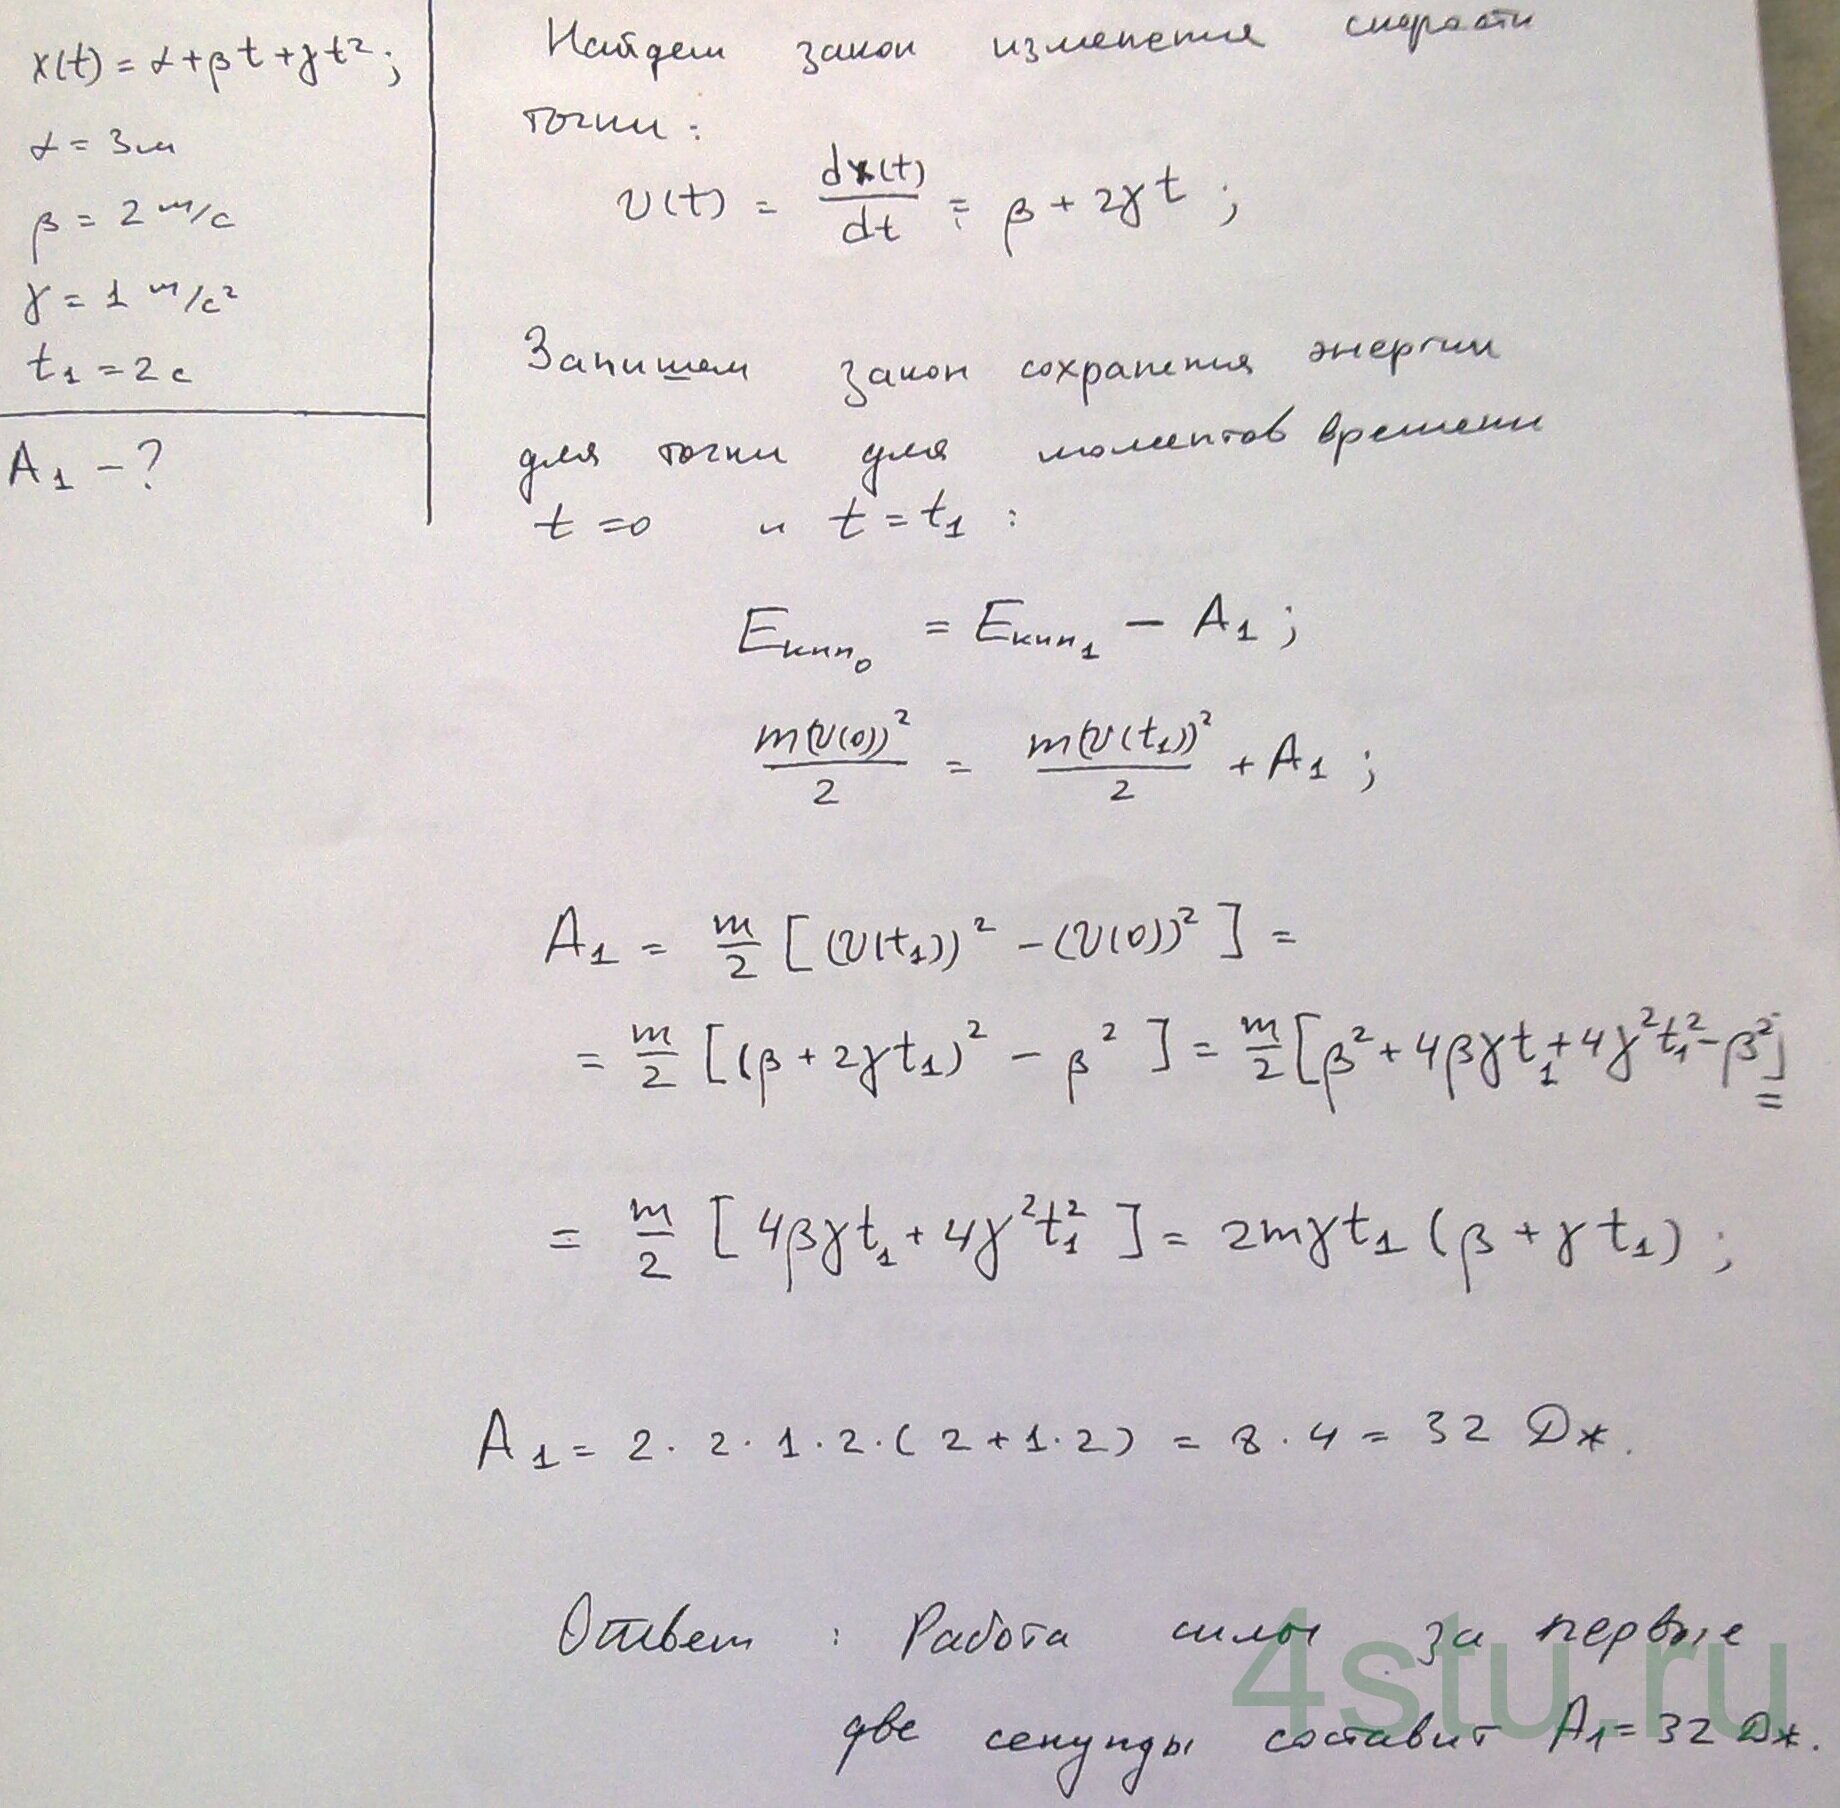 x(t) = α + βt + γt²;
α = 3м
β = 2 м/с
γ = 1 м/с²
t₁ = 2с
A₁ – ?
Найдем закон изменения скорости
точки:
v(t) = dx(t)/dt = β + 2γt ;
Запишем закон сохранения энергии
для точки для моментов времени
t = 0 и t = t₁ :
Eкин₀ = Eкин₁ – A₁ ;
m(v(0))²/2 = m(v(t₁))²/2 + A₁ ;
A₁ = m/2 [(v(t₁))² – (v(0))²] =
= m/2 [(β + 2γt₁)² – β²] = m/2 [β² + 4βγt₁ + 4γ²t₁² – β²] =
= m/2 [4βγt₁ + 4γ²t₁²] = 2mγt₁(β + γt₁) ;
A₁ = 2 · 2 · 1 · 2 · (2 + 1 · 2) = 8 · 4 = 32 Дж.
Ответ : Работа силы за первые
две секунды составит A₁ = 32 Дж.
4stu.ru